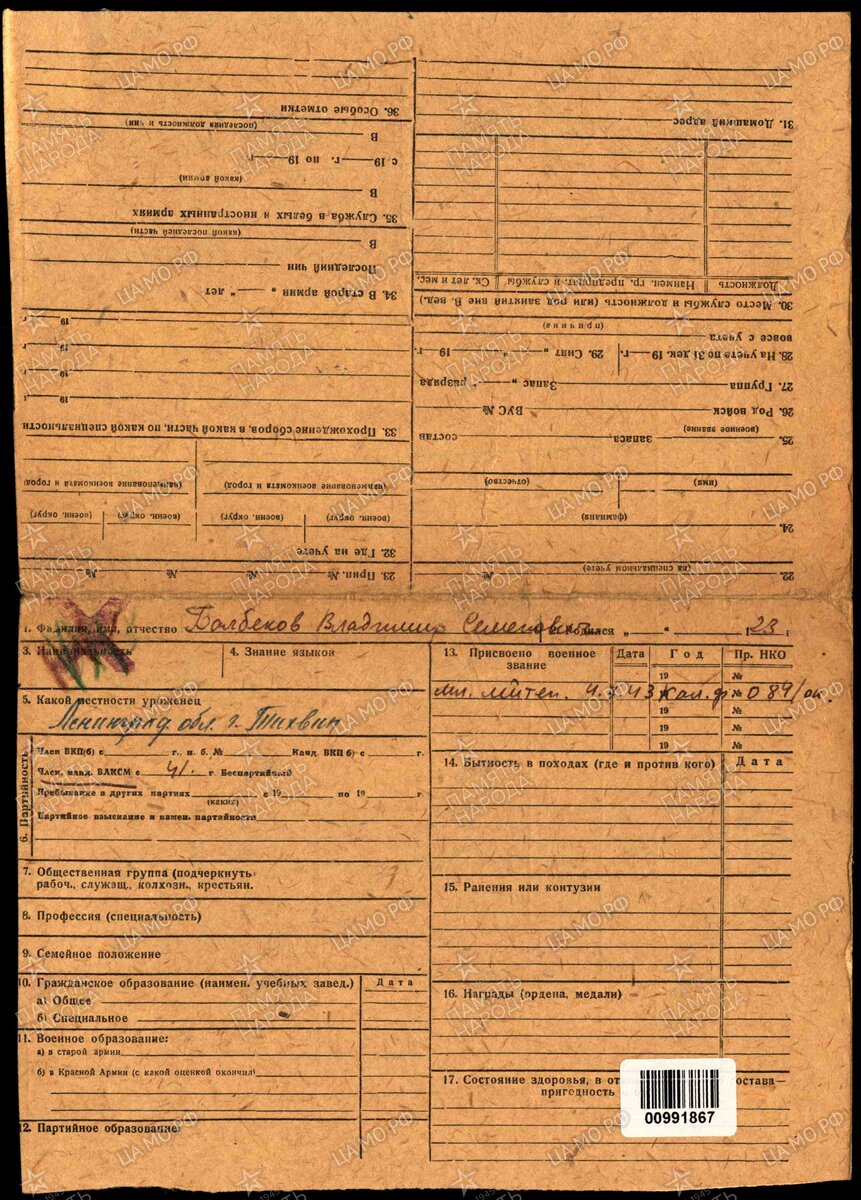 22. (на специальном учете) №
23. Прип. № № № №
24.
(фамилия)
(имя) (отчество)
25. Запаса, состав
(военное звание)
26. Род войск ВУС №
27. Группа Запас „ “ разряда
28. На учете по 31 дек. 19 г. 29. Снят „ “ 19 г.
вовсе с учета
(причина)
30. Место службы и должность (или род занятий вне В. вед.)
Должность Наимен. гр. предприят. и службы Ск. лет и мес.
31. Домашний адрес
32. Где на учете
(военн. округ) (военн. округ) (военн. округ) (военн. округ)
(наименование военкомата и город) (наименование военкомата и город)
33. Прохождение сборов, в какой части, по какой специальности
19
19
19
19
34. В старой армии „ “ лет
Последний чин
В
(какой последней части)
35. Служба в белых и иностранных армиях
В
(какой армии)
с 19 г. по 19 г
В
(последняя должность и чин)
36. Особые отметки
1. Фамилия, имя, отчество Болбеков Владимир Семенович родился „ “ 23 г
3. Национальность
4. Знание языков
5. Какой местности уроженец
Ленинград. обл. г. Тихвин
6. Партийность
Член ВКП(б) с г., п. б. № Канд. ВКП б) с г.
Член, канд. ВЛКСМ с 41. г Беспартийный
Пребывание в других партиях с 19 по 19 г
(каких)
Партийное взыскание и измен. партийности
7. Общественная группа (подчеркнуть
рабоч., служащ., колхозн., крестьян.
8. Профессия (специальность)
9. Семейное положение
10. Гражданское образование (наимен. учебных завед.) Дата
а) Общее
б) Специальное
11. Военное образование:
а) в старой армии
б) в Красной Армии (с какой оценкой окончил)
12. Партийное образование:
13. Присвоено военное звание Дата Год Пр. НКО
19 №
мл. лейтен. 43 Кал. ф. № 084/
19 №
19 №
14. Бытность в походах (где и против кого) Дата
15. Ранения или контузии
16. Награды (ордена, медали)
17. Состояние здоровья, в от става—
пригодность
00991867
ПАМЯТЬ НАРОДА
ЦАМО.РФ